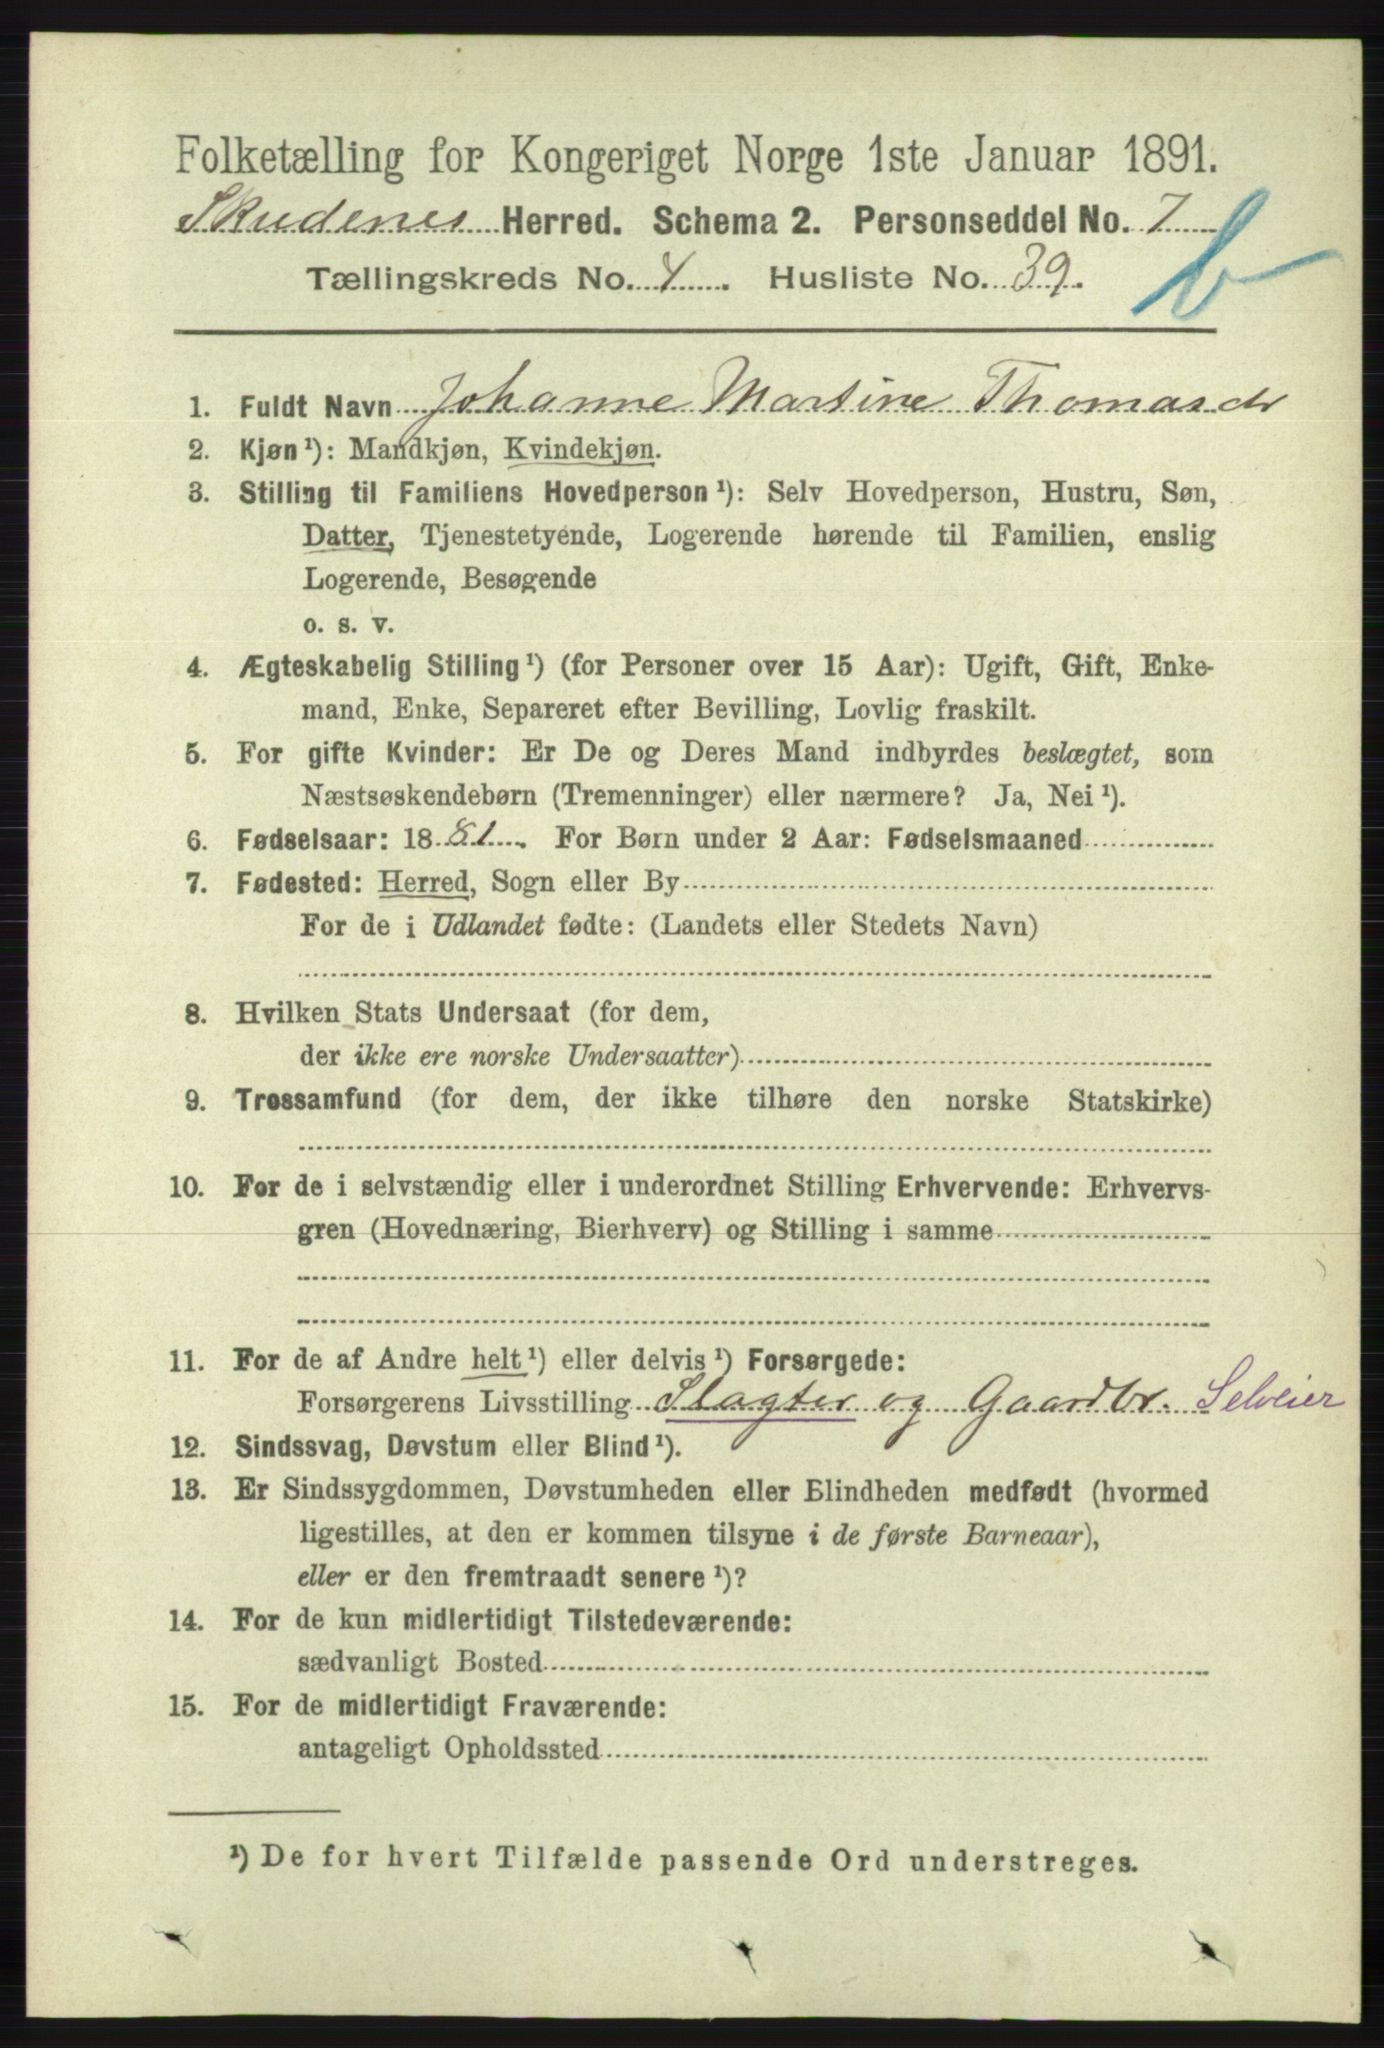 Folketælling for Kongeriget Norge 1ste Januar 1891.
Skudenes Herred. Schema 2. Personseddel No. 7
b
Tællingskreds No. 4. Husliste No. 39.
1. Fuldt Navn Johanne Martine Thomasdr
2. Kjøn¹): Mandkjøn, Kvindekjøn.
3. Stilling til Familiens Hovedperson¹): Selv Hovedperson, Hustru, Søn,
Datter, Tjenestetyende, Logerende hørende til Familien, enslig
Logerende, Besøgende
o. s. v.
4. Ægteskabelig Stilling¹) (for Personer over 15 Aar): Ugift, Gift, Enke-
mand, Enke, Separeret efter Bevilling, Lovlig fraskilt.
5. For gifte Kvinder: Er De og Deres Mand indbyrdes beslægtet, som
Næstsøskendebørn (Tremenninger) eller nærmere? Ja, Nei¹).
6. Fødselsaar: 1881. For Børn under 2 Aar: Fødselsmaaned
7. Fødested: Herred, Sogn eller By
For de i Udlandet fødte: (Landets eller Stedets Navn)
8. Hvilken Stats Undersaat (for dem,
der ikke ere norske Undersaatter)
9. Trossamfund (for dem, der ikke tilhøre den norske Statskirke)
10. For de i selvstændig eller i underordnet Stilling Erhvervende: Erhvervs-
gren (Hovednæring, Bierhverv) og Stilling i samme
11. For de af Andre helt¹) eller delvis¹) Forsørgede:
Forsørgerens Livsstilling Slagter og Gaardbr. Selveier
12. Sindssvag, Døvstum eller Blind¹).
13. Er Sindssygdommen, Døvstumheden eller Blindheden medfødt (hvormed
ligestilles, at den er kommen tilsyne i de første Barneaar),
eller er den fremtraadt senere¹)?
14. For de kun midlertidigt Tilstedeværende:
sædvanligt Bosted
15. For de midlertidigt Fraværende:
antageligt Opholdssted
¹) De for hvert Tilfælde passende Ord understreges.